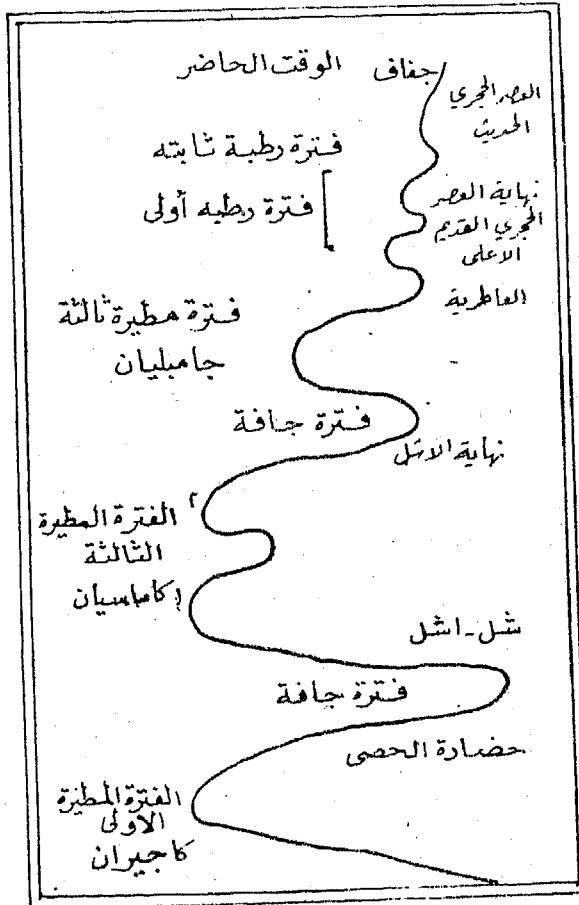 جفاف الوقت الحاضر
العصر الحجري
الحديث
فترة رطبة ثابته
فترة رطبه أولى
نهاية العصر
الحجري القديم
الاعلى
العاطرية
فترة مطيرة ثالثة
جامبليان
فترة جافة
نهاية الاشل
الفترة المطيرة
الثالثة
كاماسيان
شل - اشل
فترة جافة
حضارة الحصى
الفترة المطيرة
الاولى
كاجيران